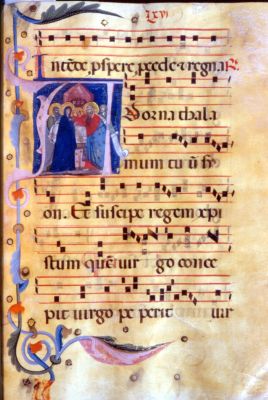 LXVI
Intēde, pspere, pcede ⁊ regna R̄.
Adorna thala
mum tuū sy
on. Et suscipe regem xpi
stum quē uir go conce
pit uirgo pe perit uir